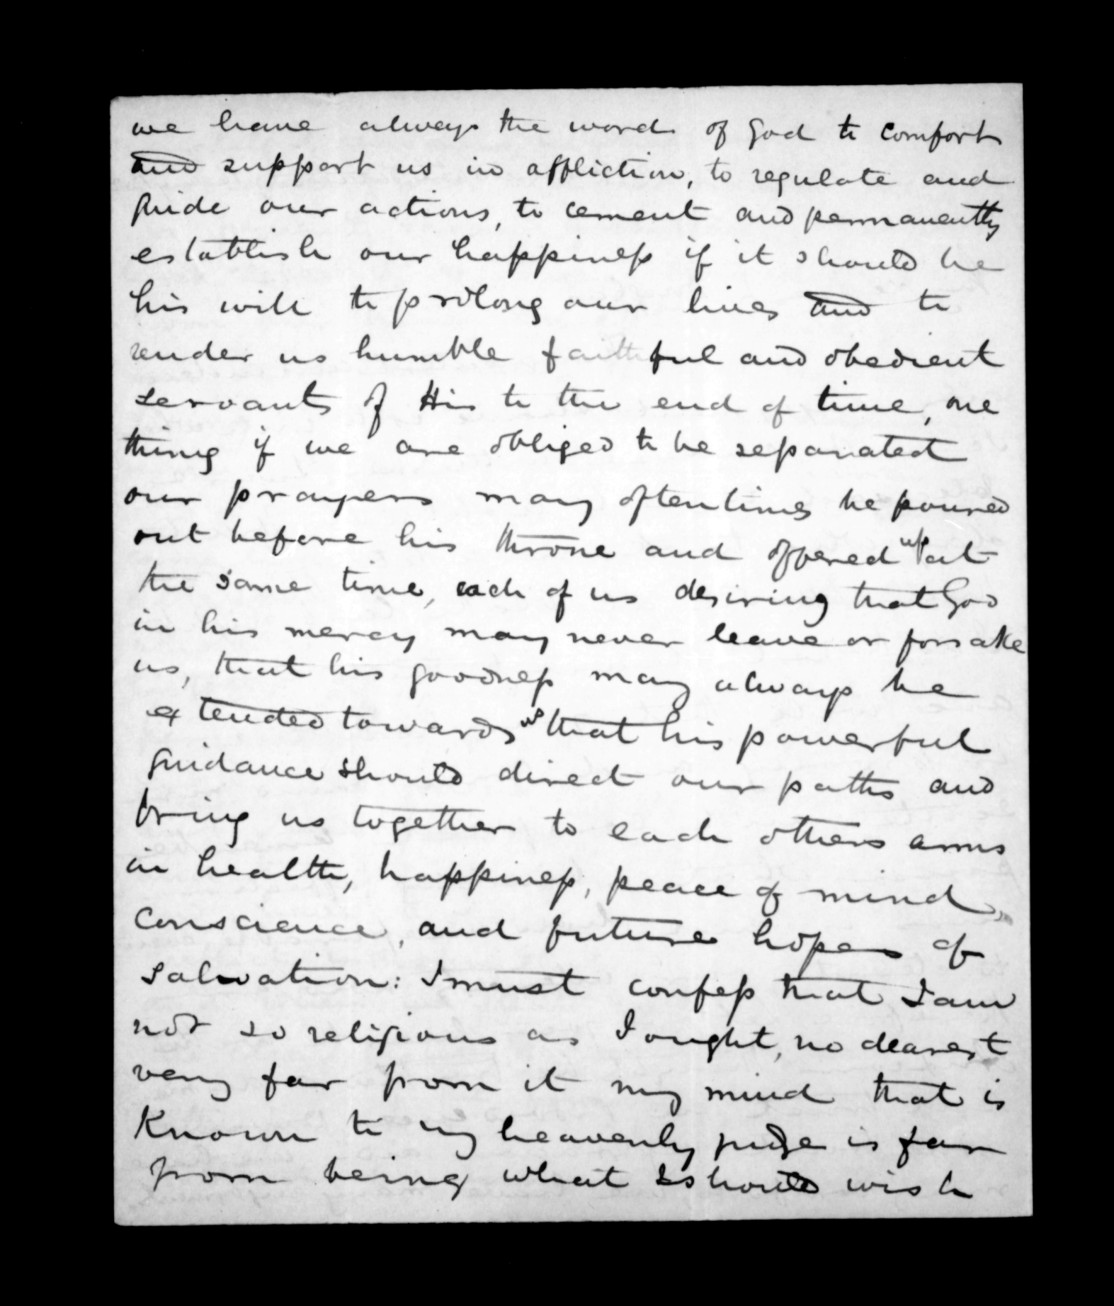 we have always the words of God to comfort
and support us in affliction, to regulate and
guide our actions, to cement and permanently
establish our happiness if it should be
his will to prolong our lives and to
render us humble faithful and obedient
servants of His to the end of time, one
thing if we are obliged to be separated
our prayers may oftentimes be poured
out before his throne and offered up at
the same time, each of us desiring that God
in his mercy may never leave or forsake
us, that his goodness may always be
extended towards us that his powerful
guidance should direct our paths and
bring us together to each others arms
in health, happiness, peace of mind,
conscience, and future hopes of
salvation: I must confess that I am
not so religious as I ought, no dearest
very far from it my mind that is
Known to my heavenly judge is far
from being what I should wish